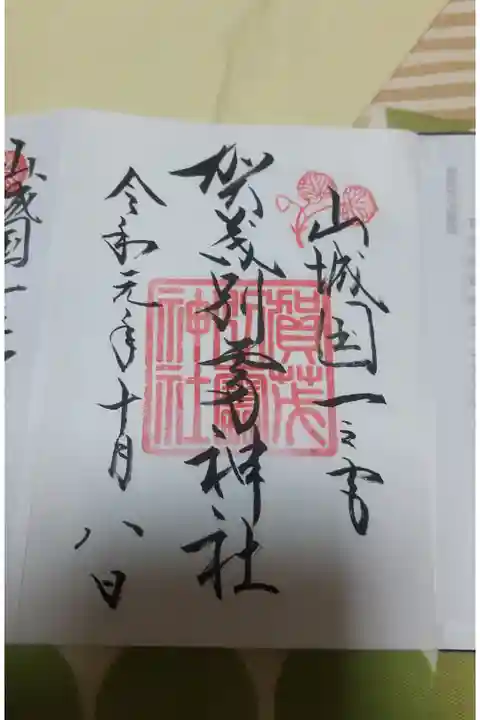 山城国一之宮
賀茂別雷神社
令和元年十月八日
賀茂
別雷
神社
山城国一之